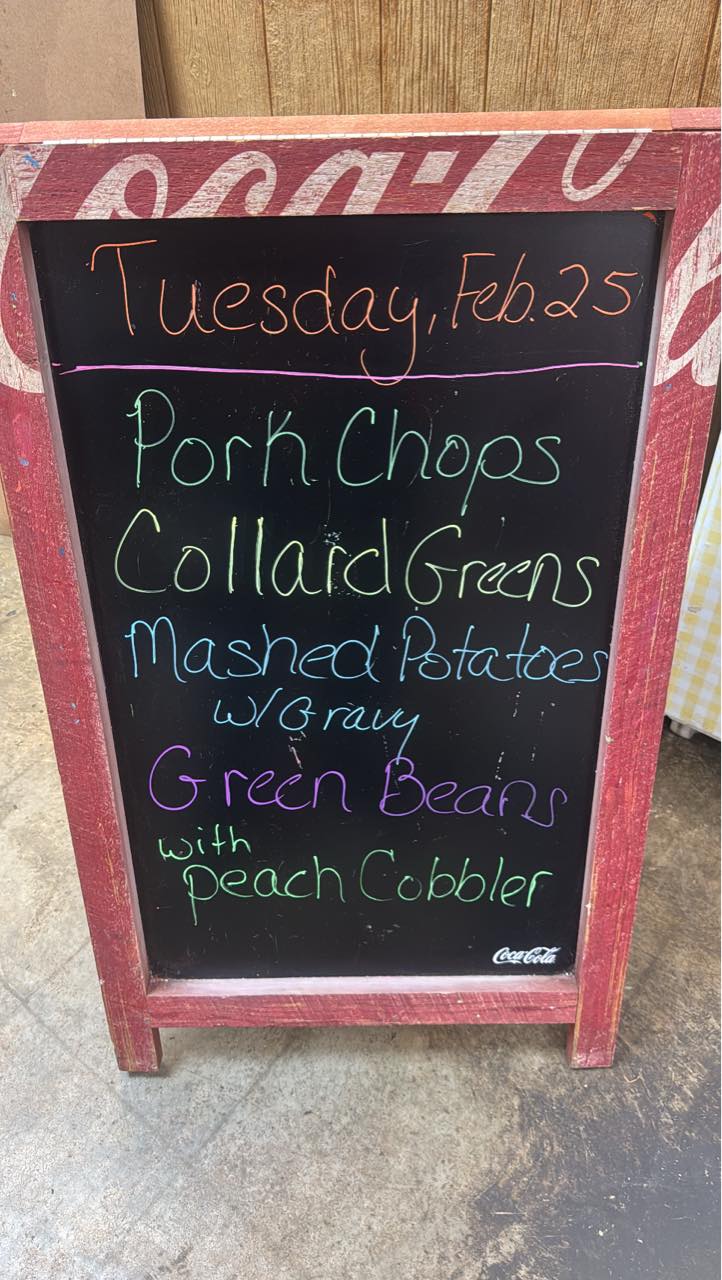 Coca-Co
Tuesday, Feb. 25
Pork Chops
Collard Greens
Mashed Potatoes
w/Gravy
Green Beans
with
peach Cobbler
Coca-Cola